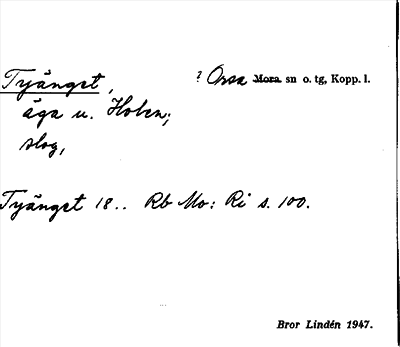 Tyänget, ? Orsa Mora sn o. tg, Kopp. l.
äga u. Holen;
slog,
Tyänget 18.. Rb Mo: Ri s. 100.
Bror Lindén 1947.